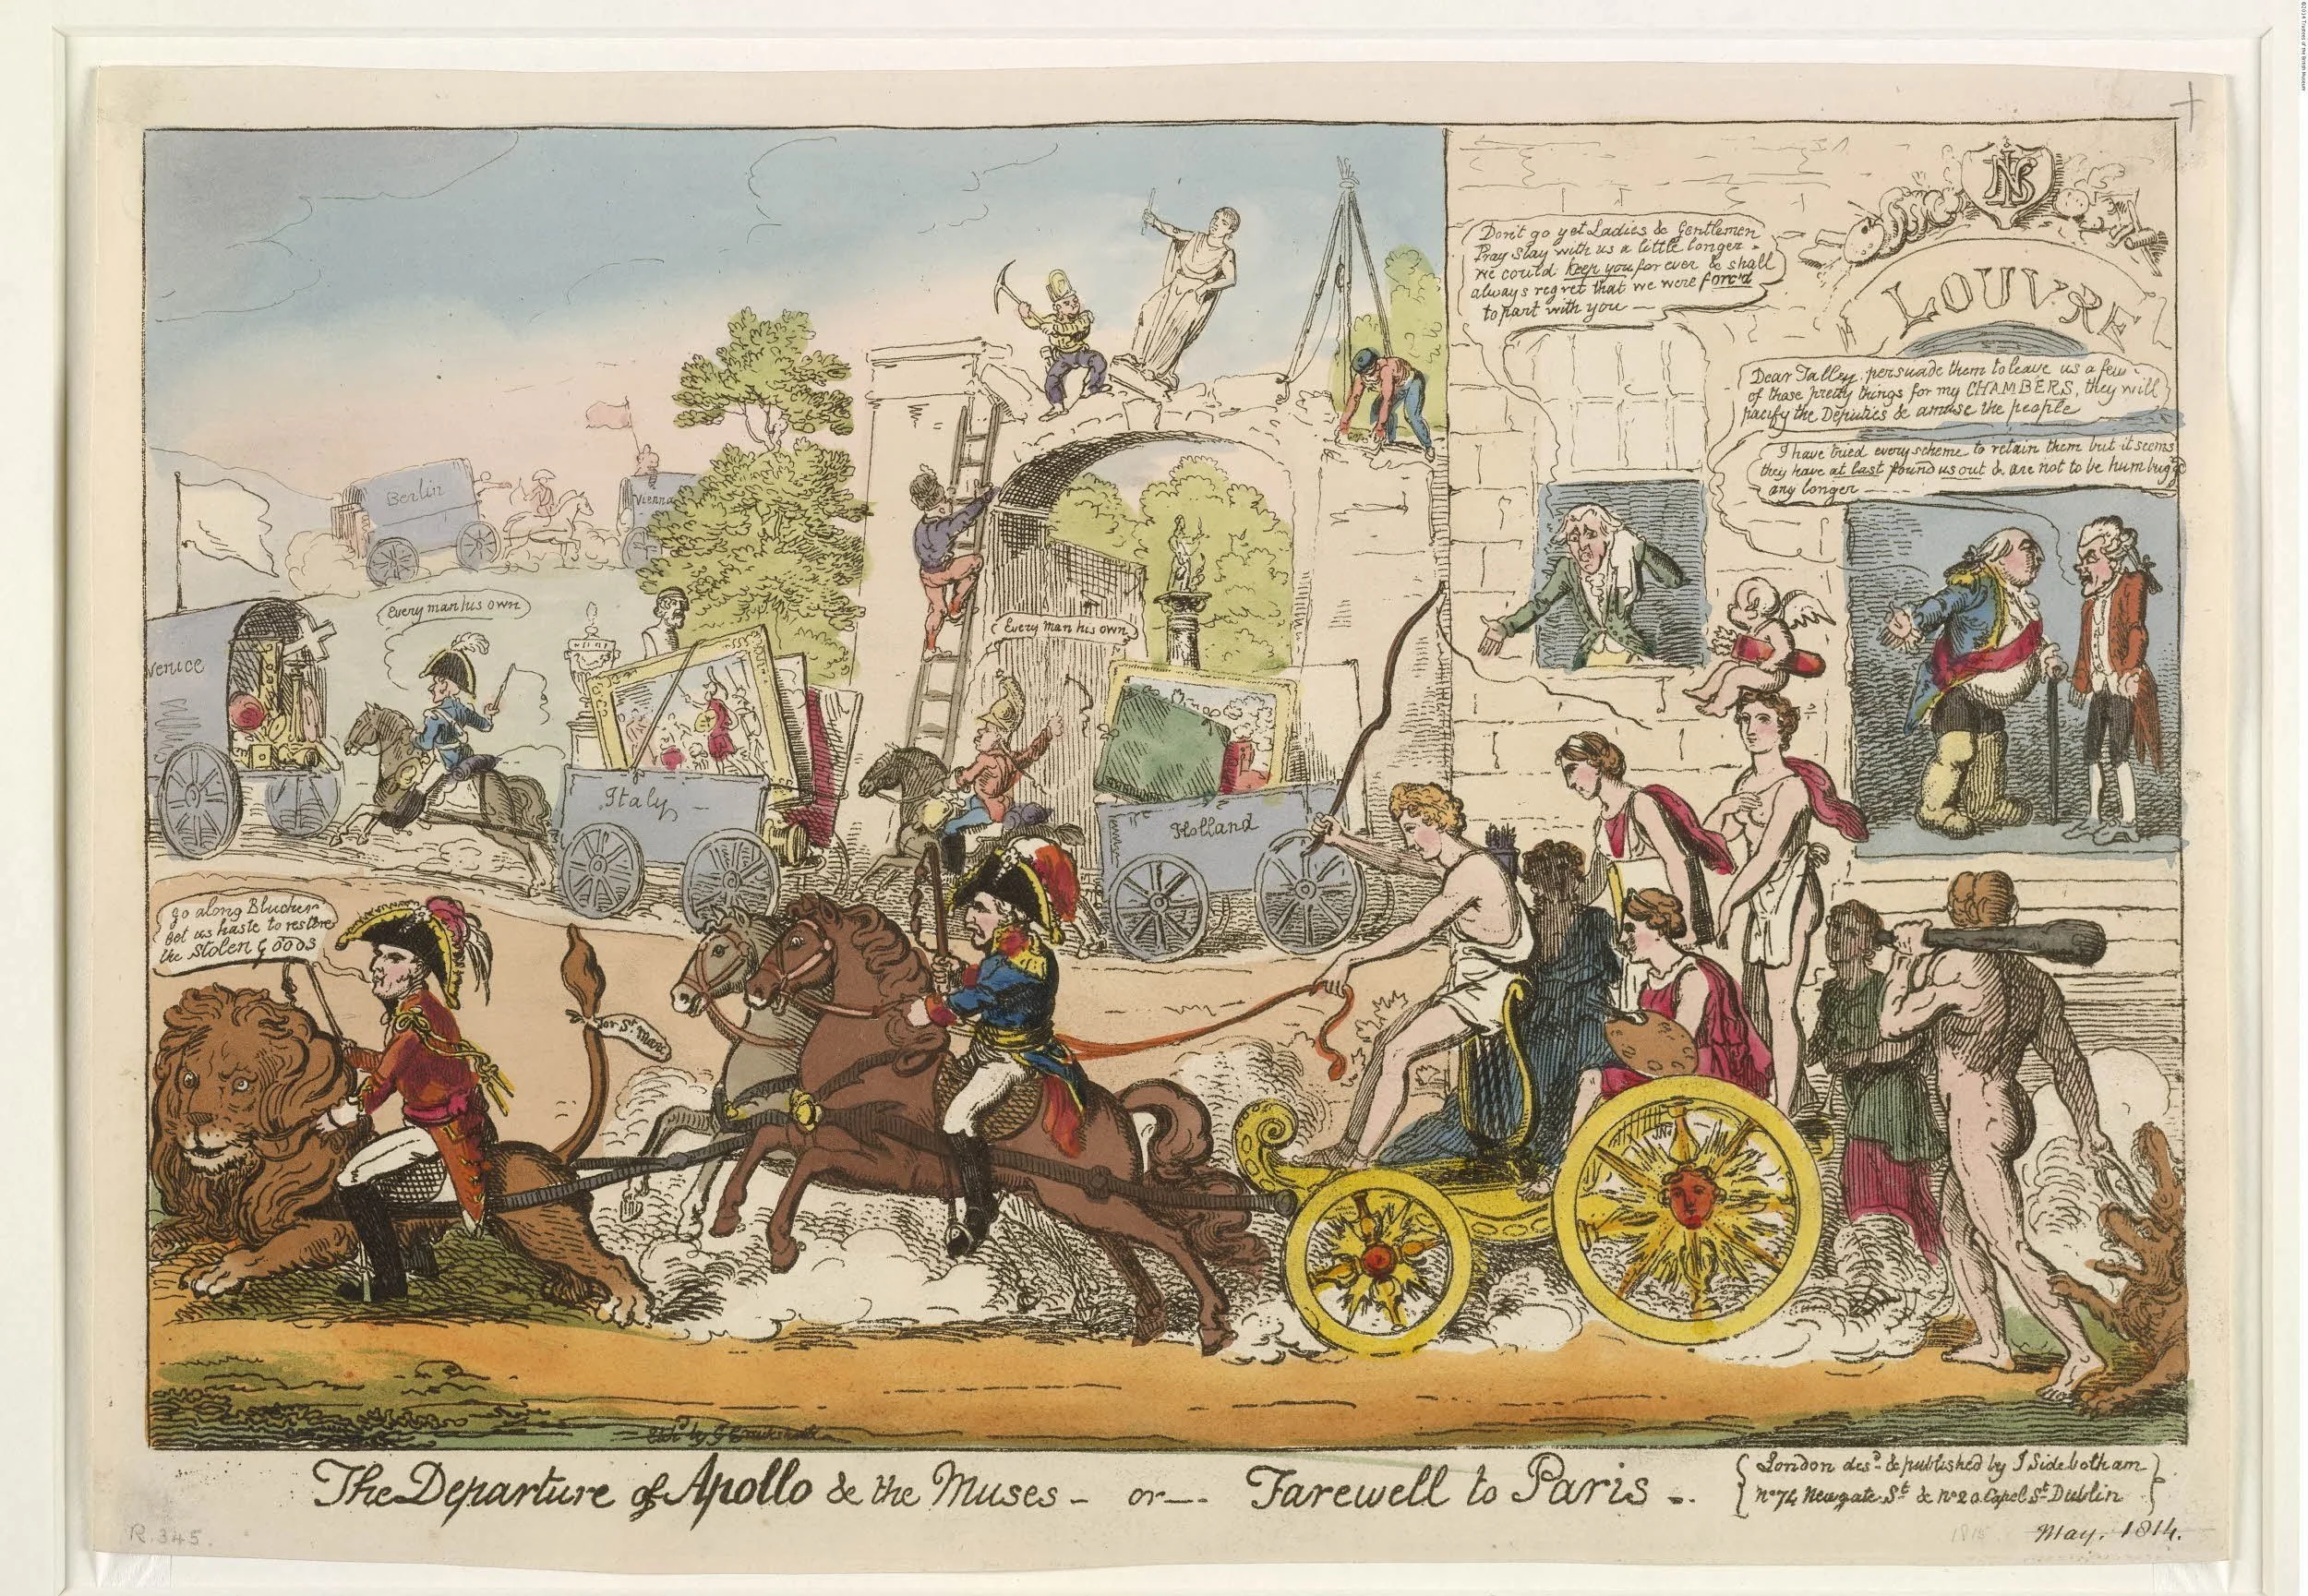 ©2014 Trustees of the British Museum
NB
LOUVRE
Don't go yet Ladies & Gentlemen
Pray Stay with us a little longer -
we could keep you for ever & shall
always regret that we were forc'd
to part with you —
Dear Talley persuade them to leave us a few
of those pretty things for my CHAMBERS, they will
pacify the Deputies & amuse the people
I have tried every scheme to retain them but it seems
they have at last found us out & are not to be humbugg'd
any longer
Berlin
Vienna
Every man his own
Every man his own
Venice
Italy
Holland
go along Blucher
let us haste to restore
the Stolen Goods
for St. Marc
Etch'd by G Cruikshank
The Departure of Apollo & the Muses - or - Farewell to Paris -.
London des.d & published by J Sidebotham
No 74 Newgate St & No 20 Capel St Dublin
May. 1814.
1815
R.345.